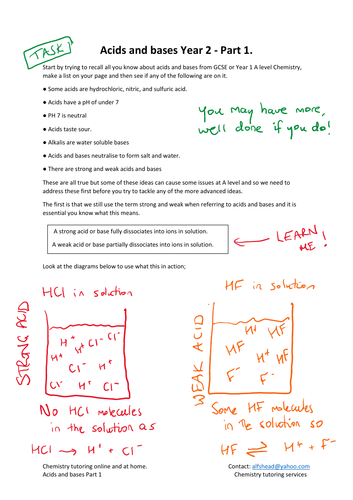 TASK
Acids and bases Year 2 - Part 1.
Start by trying to recall all you know about acids and bases from GCSE or Year 1 A level Chemistry,
make a list on your page and then see if any of the following are on it.
● Some acids are hydrochloric, nitric, and sulfuric acid.
● Acids have a pH of under 7
● PH 7 is neutral
● Acids taste sour.
● Alkalis are water soluble bases
● Acids and bases neutralise to form salt and water.
● There are strong and weak acids and bases
You may have more,
well done if you do!
These are all true but some of these ideas can cause some issues at A level and so we need to
address these first before you try to tackle any of the more advanced ideas.
The first is that we still use the term strong and weak when referring to acids and bases and it is
essential you know what this means.
A strong acid or base fully dissociates into ions in solution.
A weak acid or base partially dissociates into ions in solution.
LEARN
ME!
Look at the diagrams below to see what this in action;
HCl in solution
STRONG ACID
H⁺ Cl⁻ Cl⁻
H⁺ H⁺
Cl⁻ H⁺
Cl⁻ H⁺ Cl⁻
No HCl molecules
in the solution as
HCl → H⁺ + Cl⁻
HF in solution
WEAK ACID
H⁺ HF
HF
H⁺ HF
HF F⁻
F⁻
Some HF molecules
in the solution so
HF ⇌ H⁺ + F⁻
Chemistry tutoring online and at home.
Acids and bases Part 1
Contact: alfshead@yahoo.com
Chemistry tutoring services